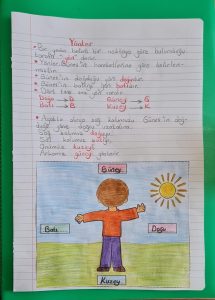 Yönler
• Bir yerin belirli bir noktaya göre bulunduğu
tarafa "yön" denir.
• Yönler Güneş'in hareketlerine göre belirlen-
miştir.
• Güneş'in doğduğu yön doğudur.
• Güneş'in battığı yön batıdır.
• Dört tane ana yön vardır.
Doğu → D Güney → G
Batı → B Kuzey → K
• Ayakta durup sağ kolumuzu Güneş'in doğ-
duğu yöne doğru uzatalım.
Sağ kolumuz doğuyu,
Sol kolumuz batıyı,
Önümüz kuzeyi,
Arkamız güneyi gösterir.
Güney
Batı
Doğu
Kuzey